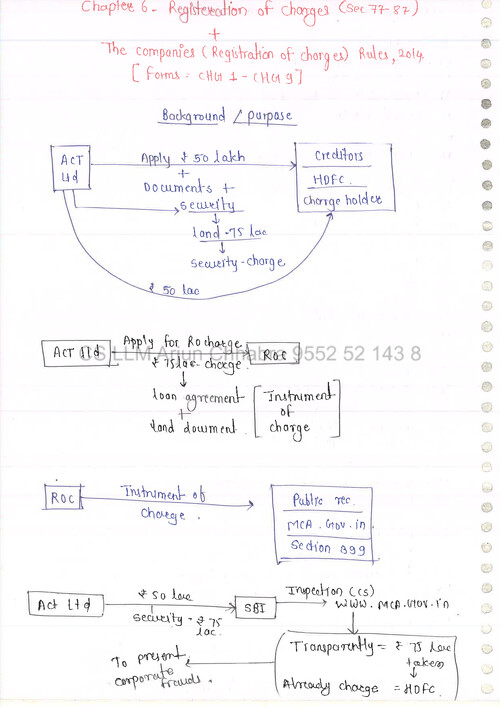 Chapter 6 - Registeration of charges (Sec 77-87)
+
The companies (Registration of charges) Rules, 2014
[Forms = CHG 1 - CHG 9]
Background / purpose
ACT Ltd
Apply ₹ 50 lakh
+
Documents +
security
↓
land - 75 lac
↓
security - charge
Creditors
HDFC.
Charge holder
₹ 50 lac
ACT ltd
Apply for Ro charge
₹ 75 lac charge.
ROC
CS LLM Arjun 9552 52 143 8
↓
loan agreement
+
land doument.
[Instrument
of
charge]
ROC
Instrument of
charge.
Public rec.
MCA.Gov.in
Section 399
Act Ltd
₹ 50 lac
security - ₹ 75
lac.
SBI
Inspection (CS)
www.MCA.Gov.in
Transparently = ₹ 75 lac
taken
↓
Already charge = HDFC.
To present
corporate
frauds.